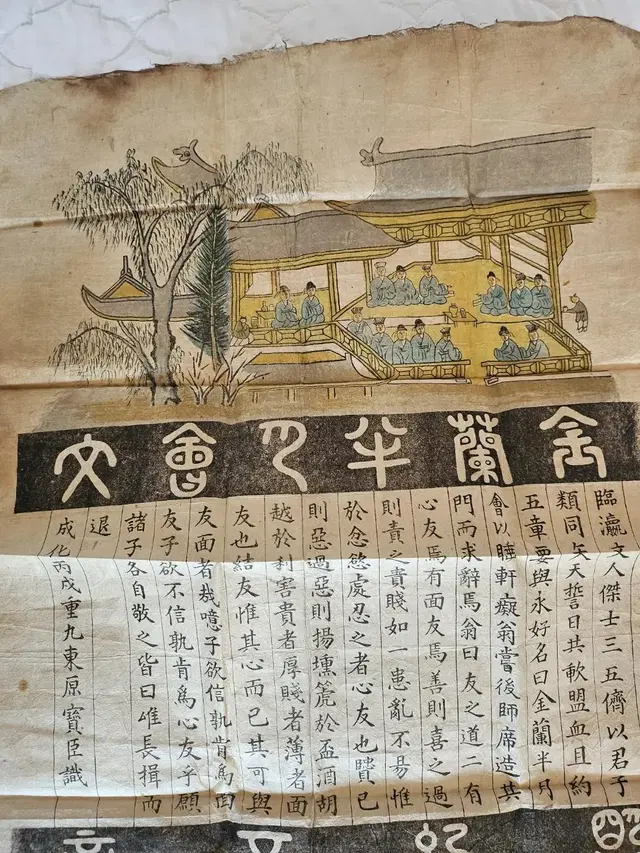 金蘭半月會文
臨瀛文人傑士三五儕以君子
類同矢天誓日共軟盟血且約
五章要與永好名曰金蘭半月
會以睡軒癡翁嘗後師席造其
門而求辭焉翁曰友之道二有
心友焉有面友焉善則喜之過
則責之貴賤如一患亂不易惟
於忿慾處忍之者心友也已
則惡過惡則揚壎箎於盃酒胡
越於利害貴者厚賤者薄者面
友也結友惟其心而已其可與
友面者哉噫子欲信孰肯爲面
友子欲不信孰肯爲心友乎願
諸子各自敬之皆曰唯長揖而
退
成化丙戌重九東原寶臣識